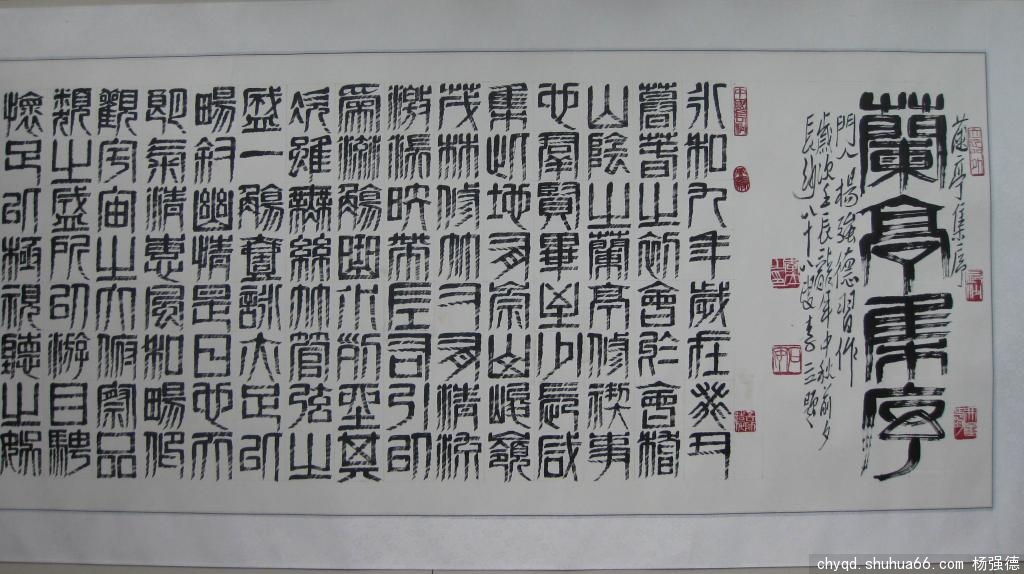 蘭亭集序
蘭亭集序
門人楊強德習作
歲次壬辰龍年中秋前夕
長沙八十八叟李立題
永和九年歲在癸丑
暮春之初會於會稽
山陰之蘭亭修禊事
也羣賢畢至少長咸
集此地有崇山峻嶺
茂林修竹又有清流
激湍映帶左右引以
為流觴曲水列坐其
次雖無絲竹管弦之
盛一觴壹詠亦足以
暢敘幽情是日也天
朗氣清惠風和暢仰
觀宇宙之大俯察品
類之盛所以游目騁
懷足以極視聽之娛
chyqd.shuhua66.com 杨强德